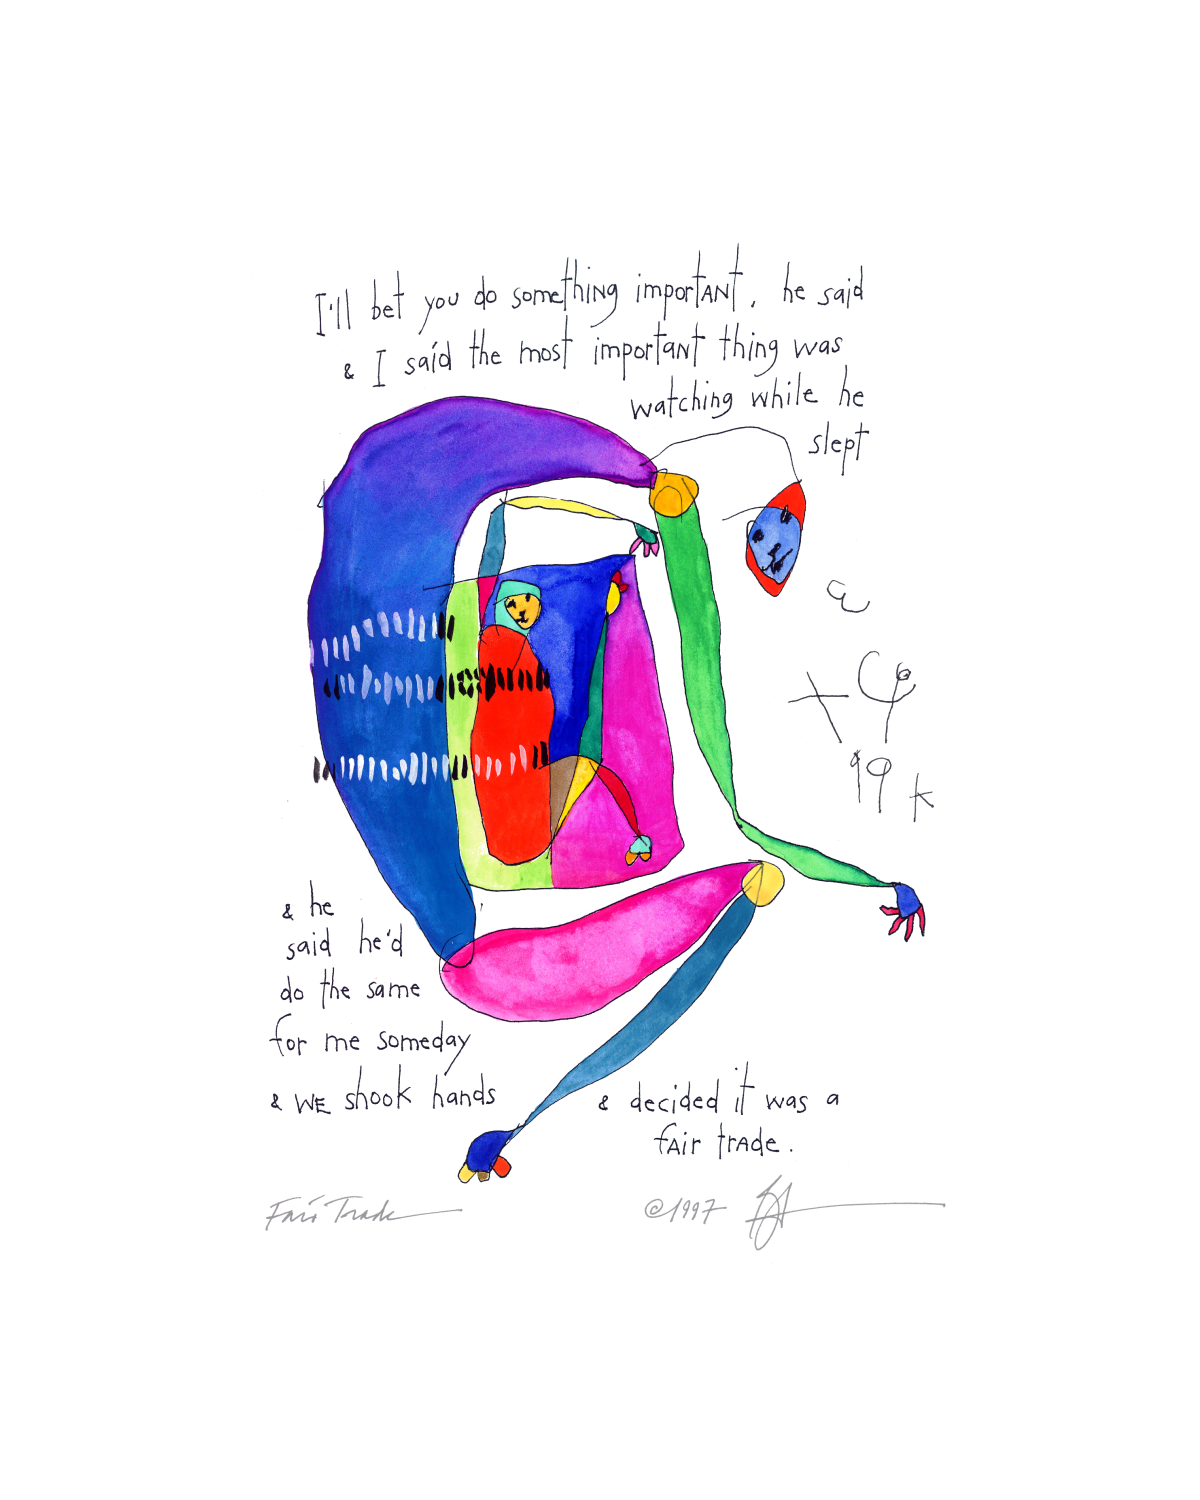 I'll bet you do something important, he said
& I said the most important thing was
watching while he
slept
& he
said he'd
do the same
for me someday
& we shook hands
& decided it was a
fair trade.
Fair Trade
©1997